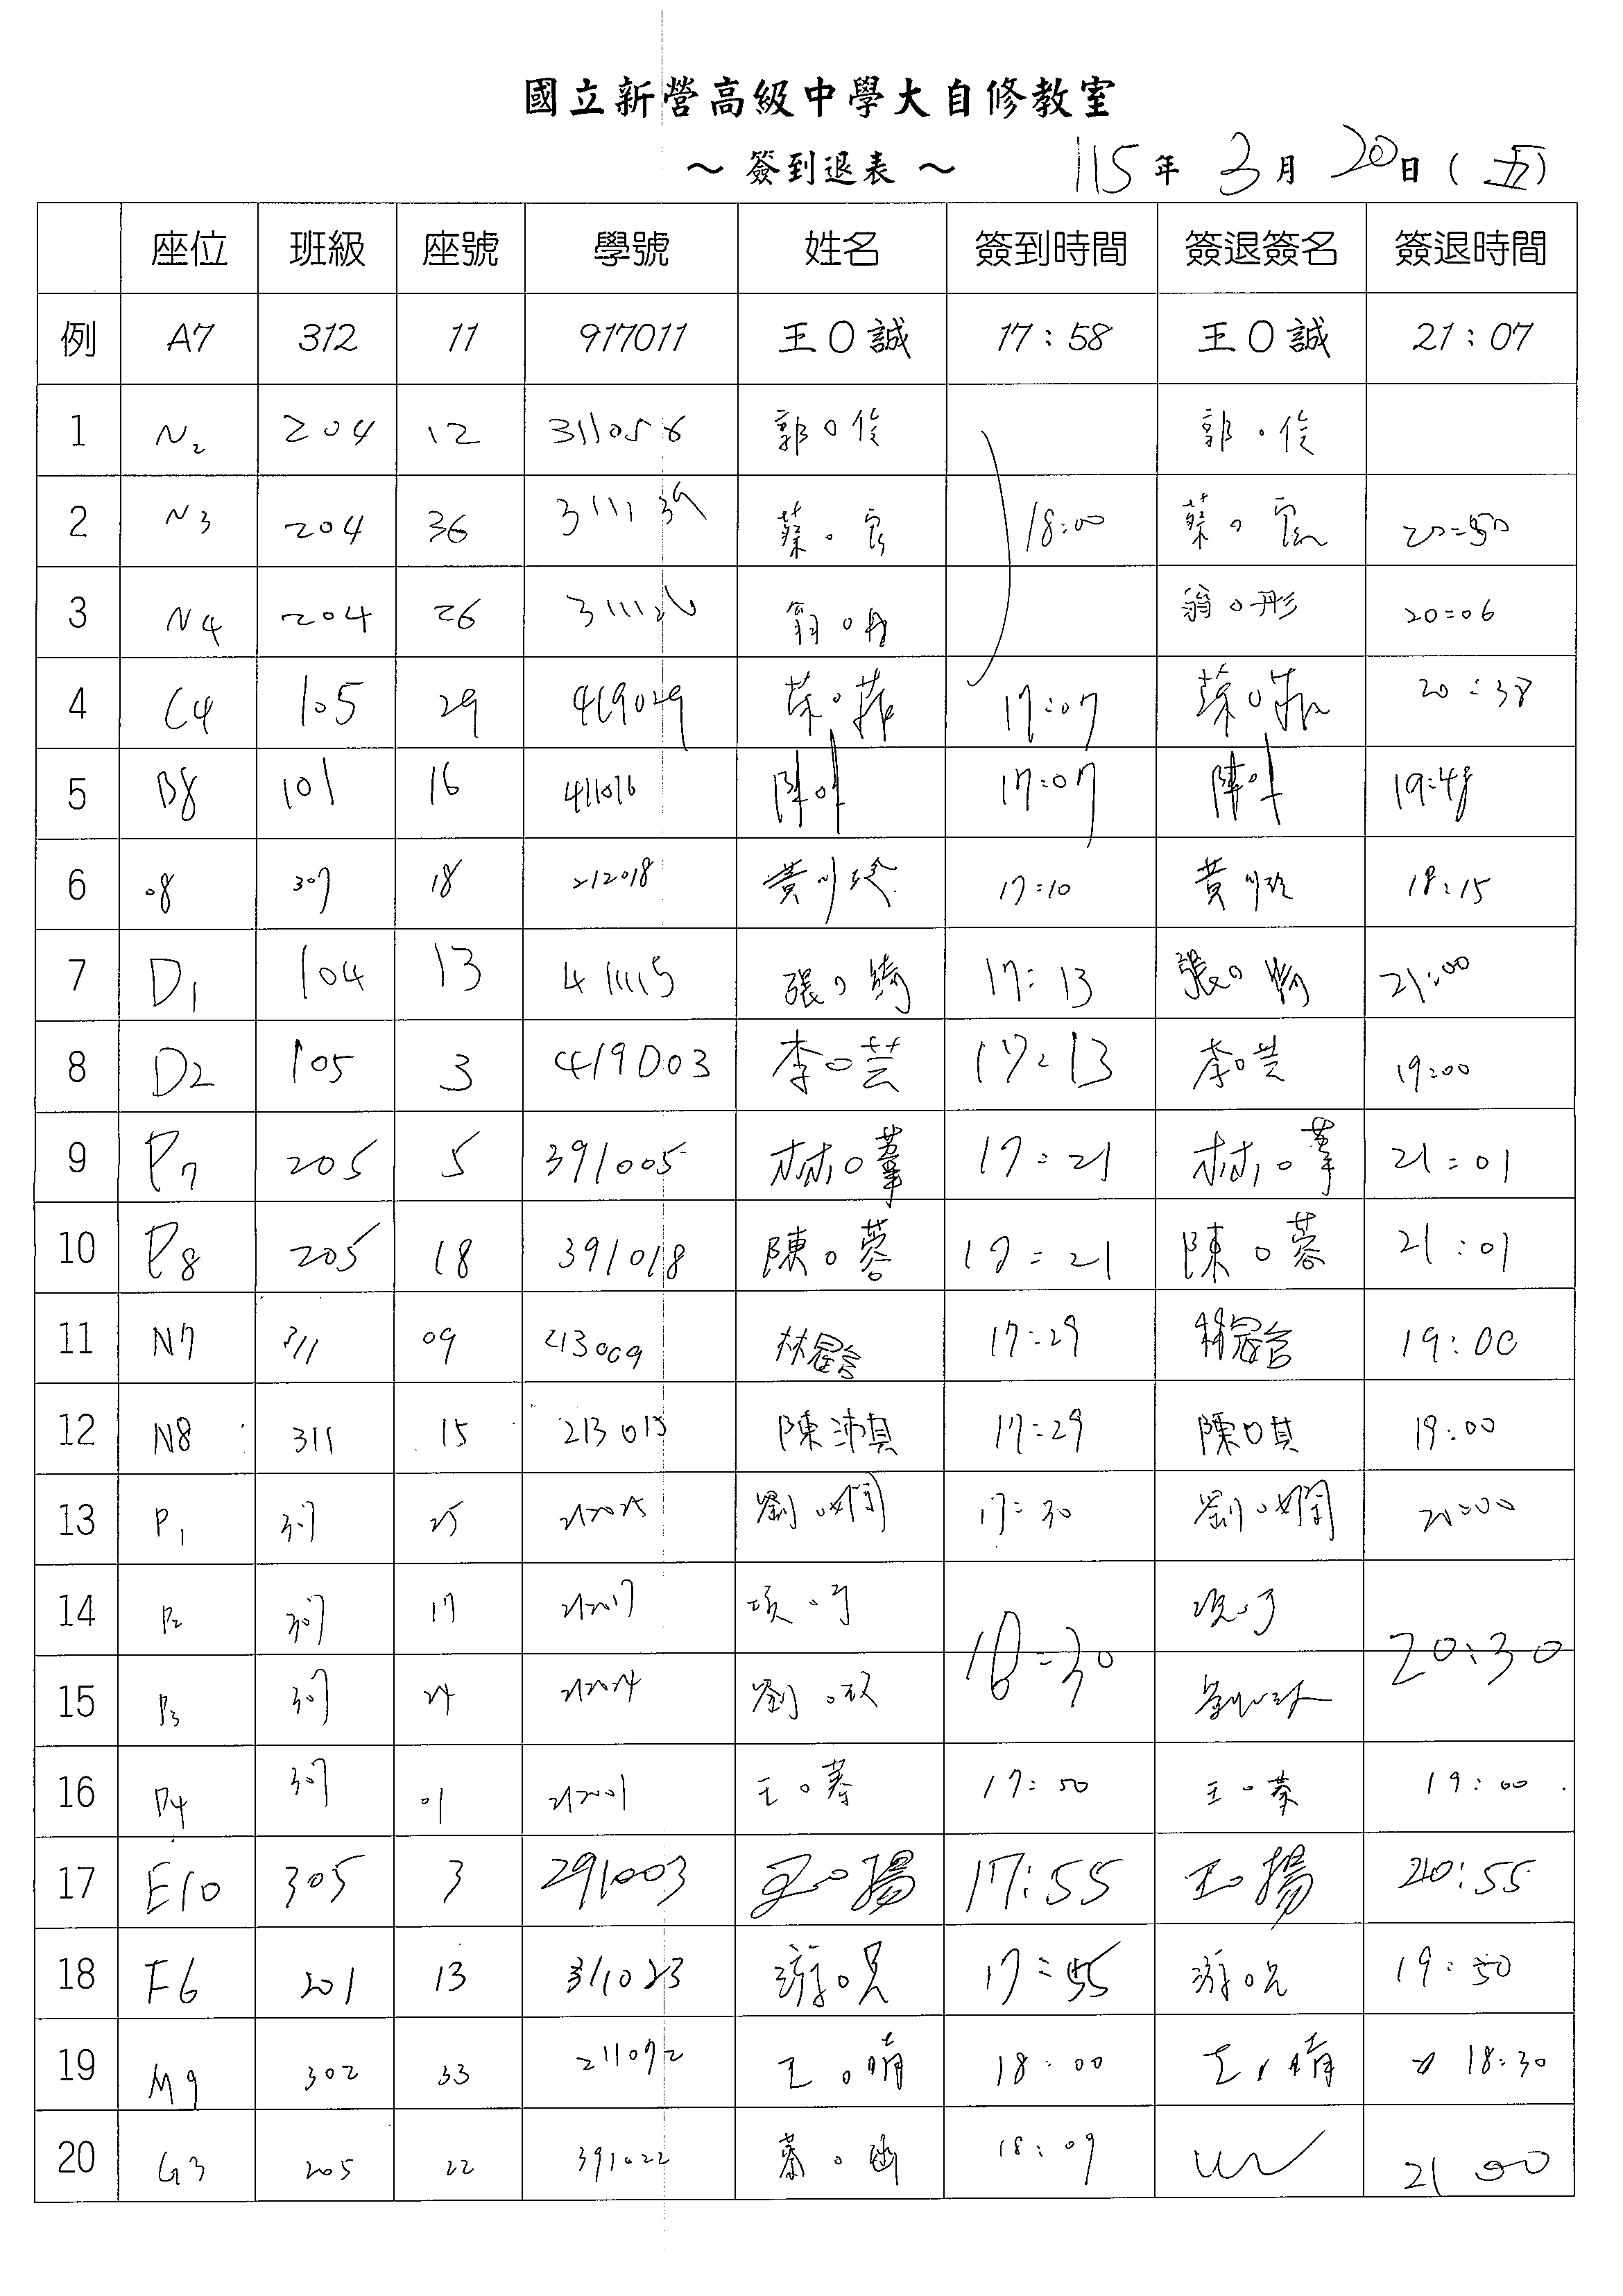 國立新營高級中學大自修教室
～ 簽到退表 ～ 115年 3月 20日 (五)
座位 班級 座號 學號 姓名 簽到時間 簽退簽名 簽退時間
例 A7 312 11 917011 王〇誠 17:58 王〇誠 21:07
1 N2 204 12 311056 郭〇俊 郭〇俊
2 N3 204 36 311139 蔡〇 18:00 蔡〇 20:50
3 N4 204 26 翁〇 翁〇彤 20:06
4 C4 105 29 419029 17:07 20:38
5 B8 101 16 411016 陳〇 17:07 陳〇 19:48
6 08 307 18 212018 黃 17:10 黃 18:15
7 D1 104 13 411115 張〇綺 17:13 張〇綺 21:00
8 D2 105 3 419003 李〇芸 17:13 李〇芸 19:00
9 P7 205 5 391005 林〇葦 17:21 林〇葦 21:01
10 P8 205 18 391018 陳〇蓉 17:21 陳〇蓉 21:01
11 N7 311 09 213009 林冠言 17:29 林冠言 19:00
12 N8 311 15 213015 陳沛其 17:29 陳〇其 19:00
13 P1 307 25 212025 劉〇嫻 17:30 劉〇嫻 20:00
14 P2 307 17 212017
18:30 20:30
15 P3 307 24 212024 劉〇 劉〇
16 P4 307 01 212001 王〇蓁 17:50 王〇蓁 19:00
17 E10 305 3 291003 王〇揚 17:55 王〇揚 20:55
18 F6 201 13 311023 游〇 17:55 游〇 19:50
19 M9 302 33 211072 王〇晴 18:00 王〇晴 18:30
20 G3 205 22 391022 18:09 21 00